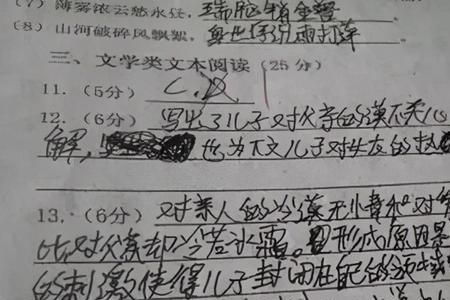 (7) 薄雾浓云愁永昼, 瑞脑销金兽。
(8) 山河破碎风飘絮, 身世浮沉雨打萍
三、文学类文本阅读 (25分)
11. (5分) C.D
12. (6分) 写出了儿子对父亲的漠不关心
解, 也为下文儿子对 的
13. (6分) 对亲人的冷漠无 和对
比对父亲却冷若冰霜。形成原因是
的刺激使得儿子封闭在自己的领域